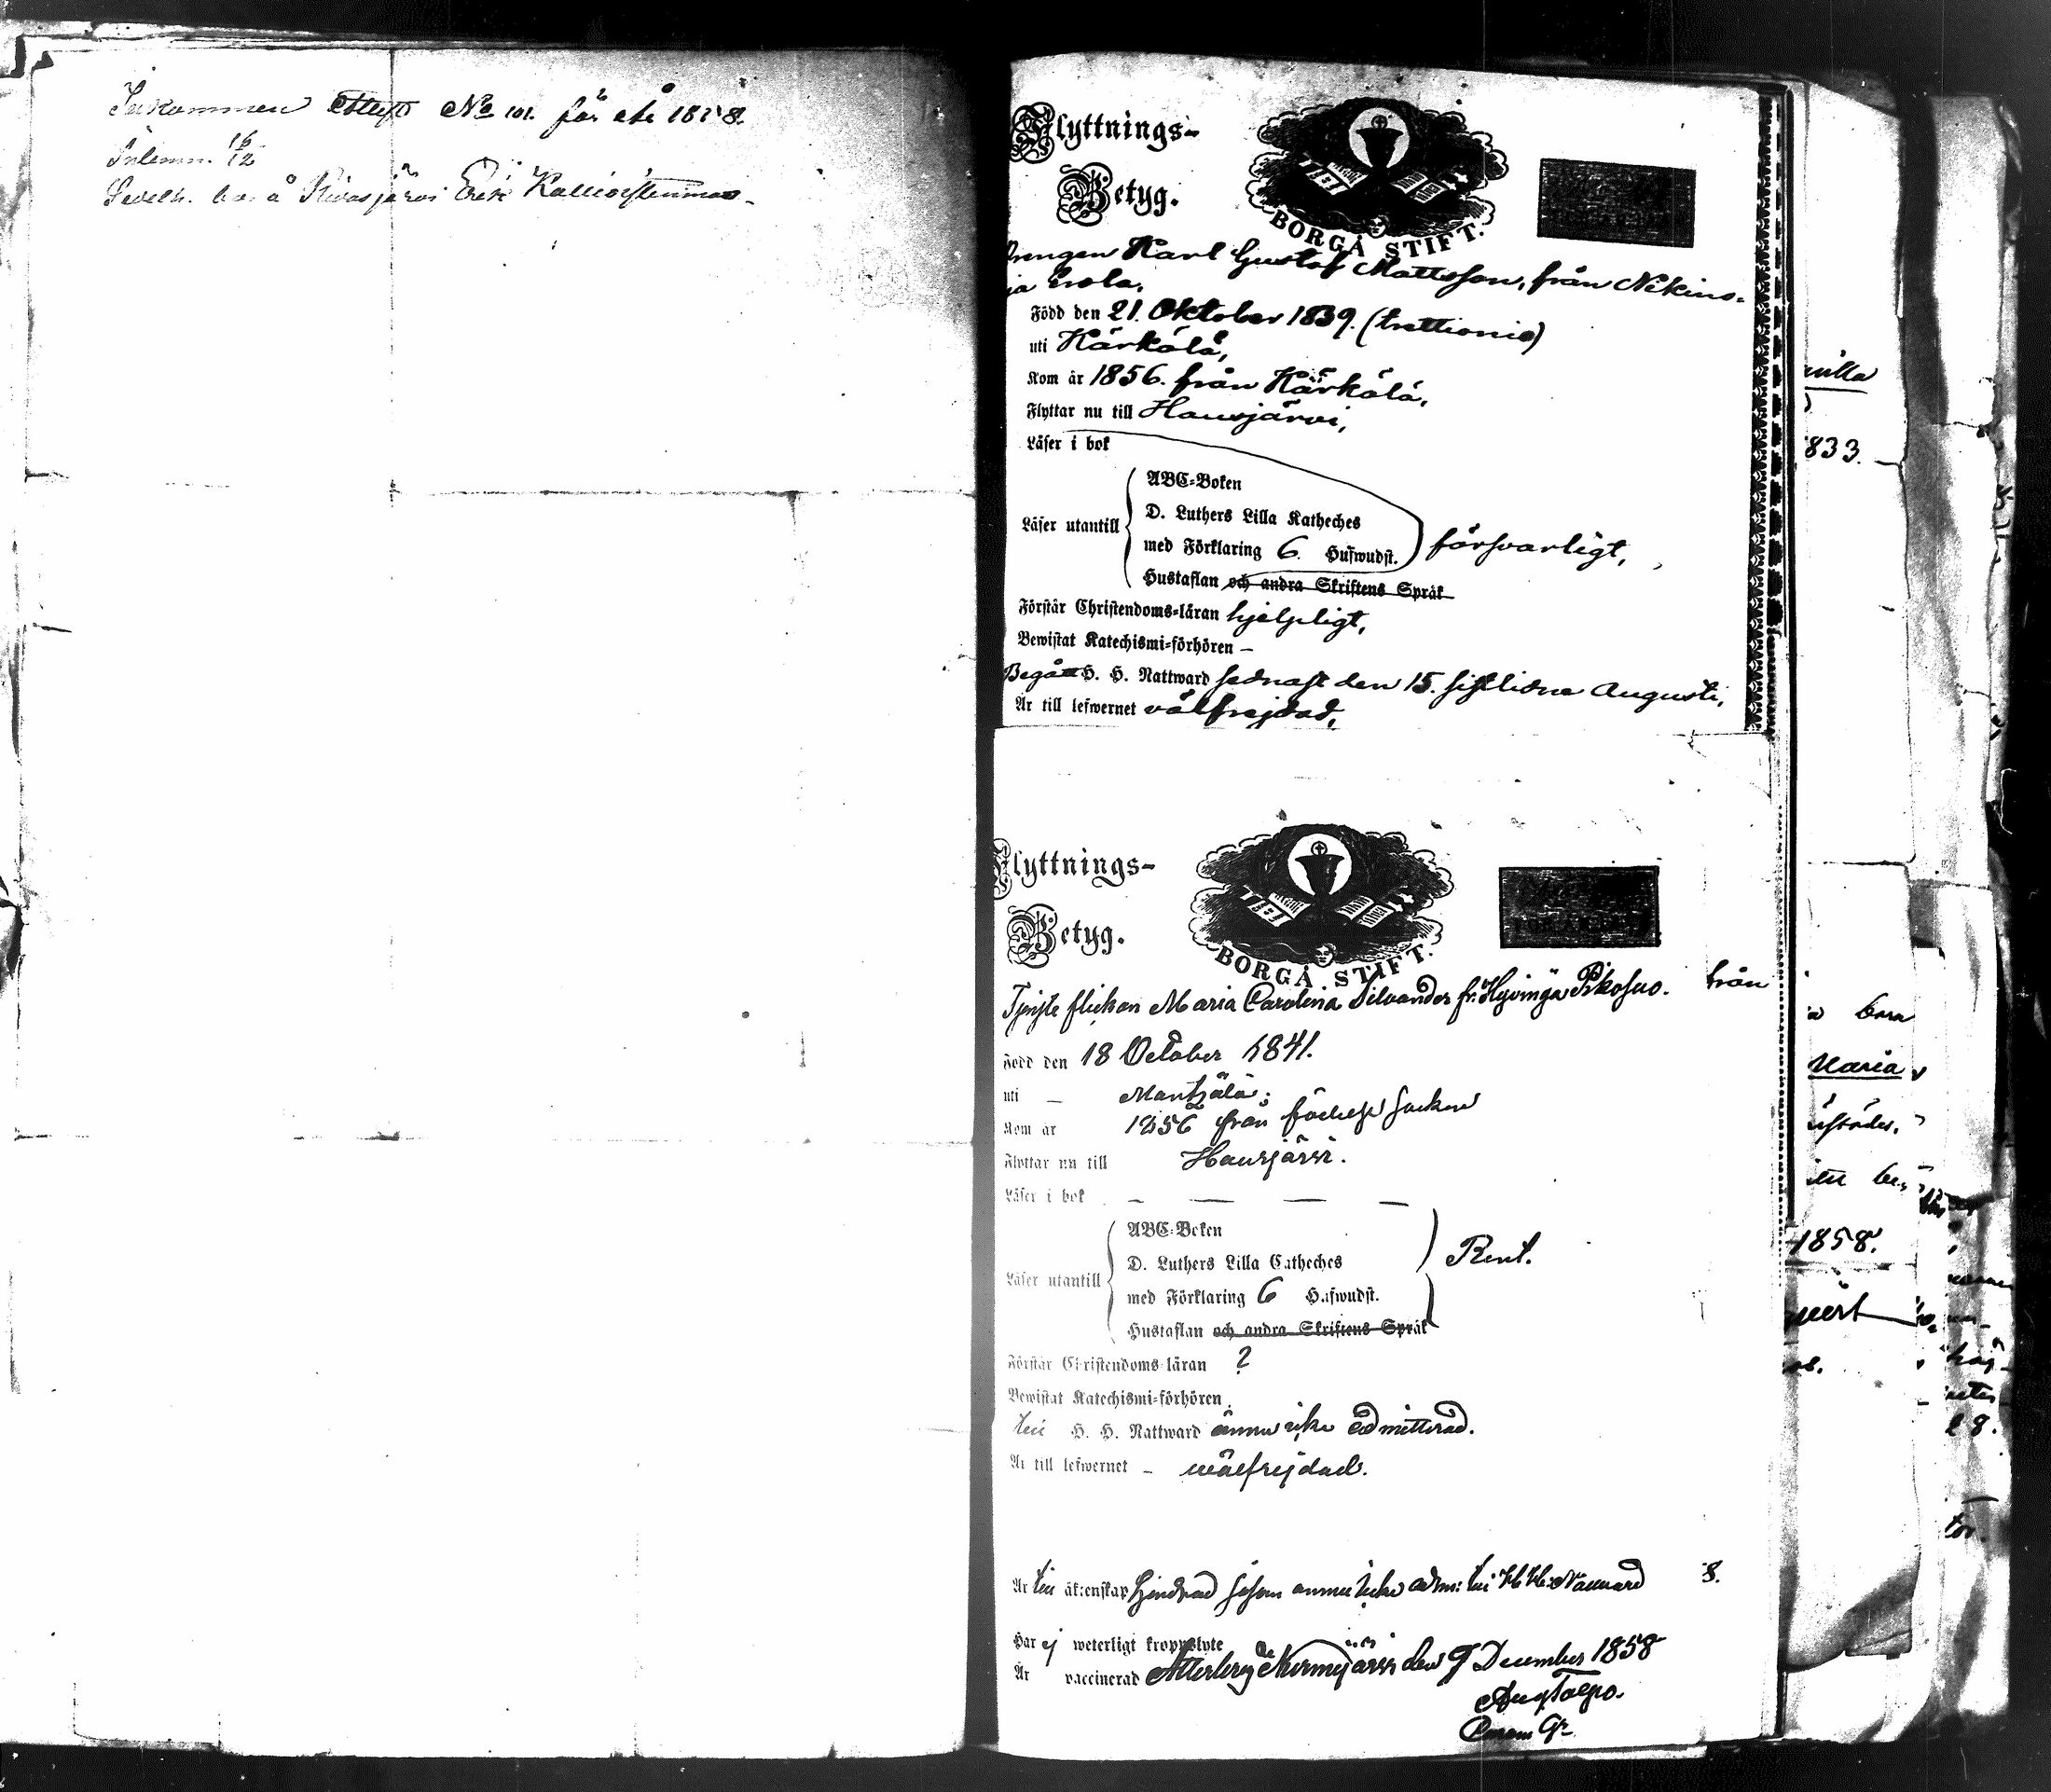 Inkommen Attest No 101. för år 1858.
Inlemn. 16/12
Sedeln. bar å Kivasjärvi Erik
Flyttnings-
Betyg.
BORGÅ STIFT.
Drengen Karl Gustaf Mattsson, från Nekins-
ja Erola.
Född den 21. Oktober 1839. (trettionio)
uti Kärkölä,
Kom år 1856. från Kärkölä,
Flyttar nu till Hausjärvi,
Läser i bok
ABC-Boken
D. Luthers Lilla Katheches
Läser utantill
med Förklaring 6. Hufwudst.
försvarligt,
Hustaflan och andra Skriftens Språk
Förstår Christendoms-läran hjelpligt,
Bewistat Katechismi-förhören —
Begått H. H. Nattward sednast den 15. sistlidne Augusti,
Är till lefwernet välfrejdad,
Flyttnings-
Betyg.
BORGÅ STIFT.
Tjenste flickan Maria Carolina Silvander fr. Hyvinga Pikosuo.
från
Född den 18 October 1841.
uti — Mäntzälä;
Kom år 1856 från födelse socknen
Flyttar nu till Hausjärvi.
Läser i bok — — — —
ABC-Boken
D. Luthers Lilla Catheches
Rent.
Läser utantill
med Förklaring 6 Hufwudst.
Hustaflan och andra Skriftens Språk
Förstår Christendoms-läran ?
Bewistat Katechismi-förhören
till H. H. Nattward ännu icke admitterad.
Är till lefwernet — wälfrejdad.
Är till äktenskap hindrad såsom ännu icke adm: till H. H. Nattward
8.
Har ej weterligt kroppslyte
Är vaccinerad Attesterar Nurmijärvi den 9 December 1858
Aug
milla
1833.
Maria
1858.